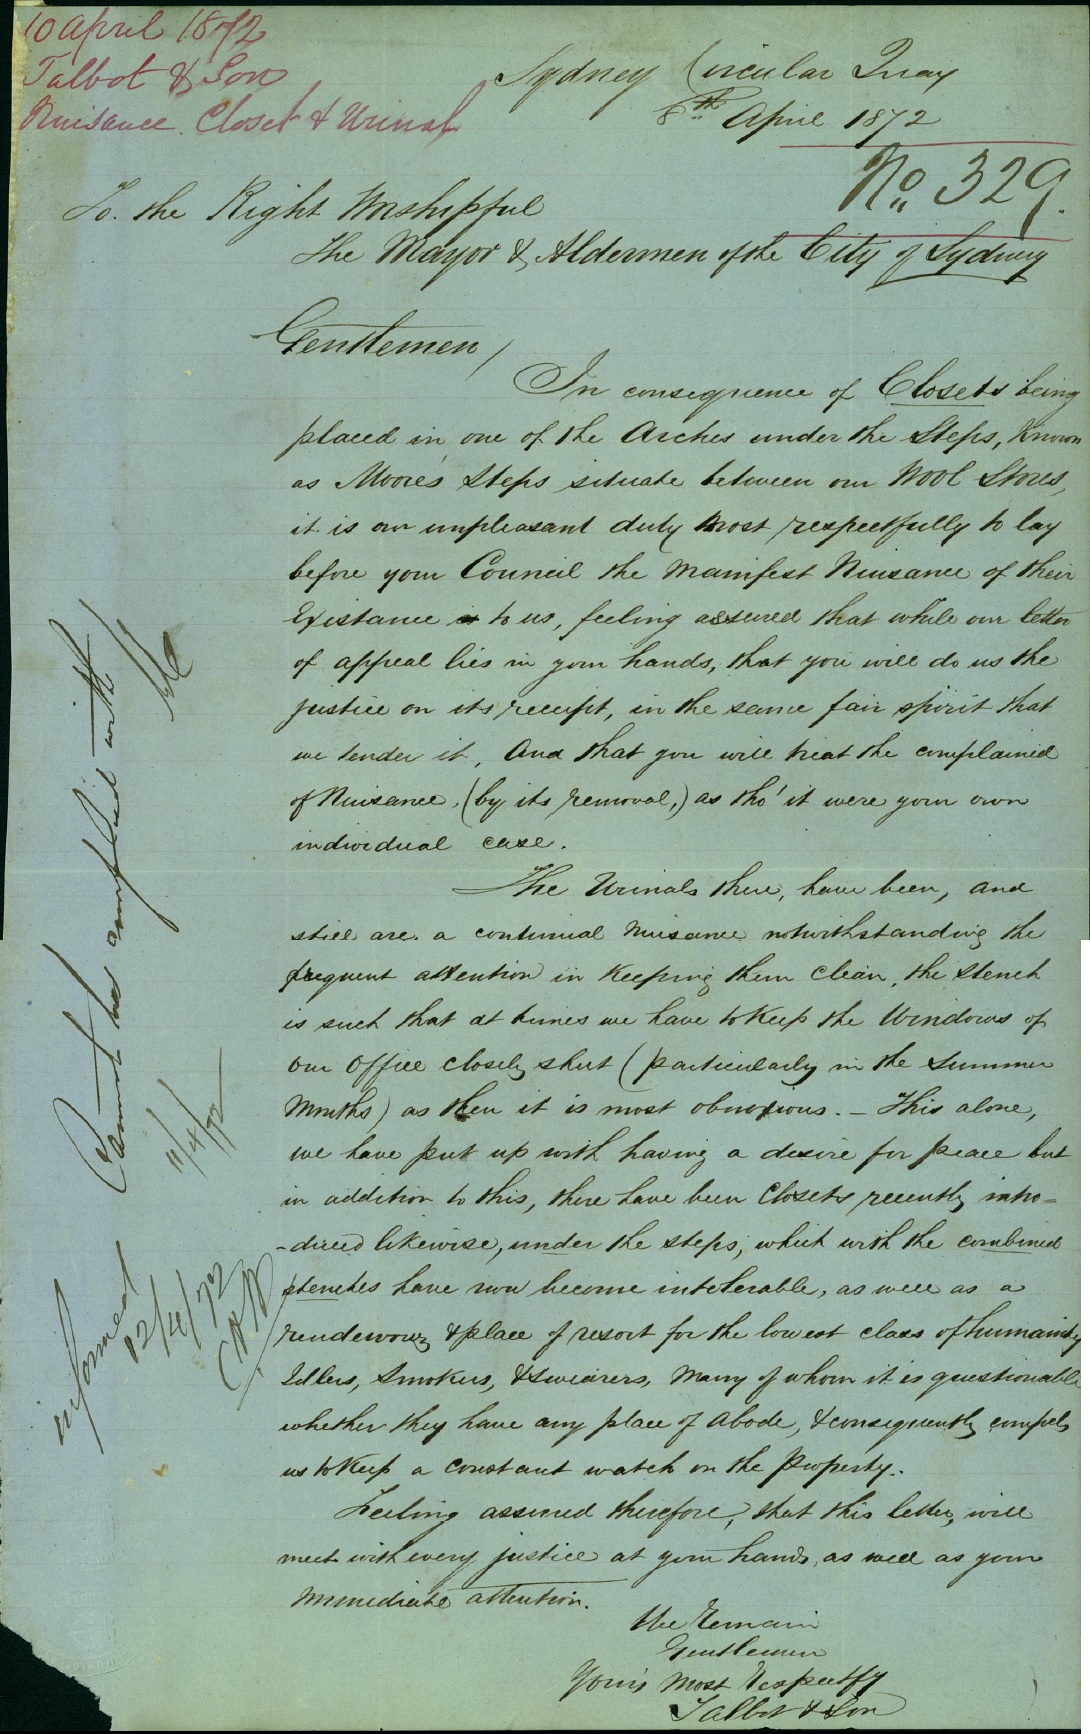 10 April 1872
Talbot & Son
Nuisance Closet & Urinal
Sydney Circular Quay
8th April 1872
No. 329.
To. the Right Worshipful
the Mayor & Aldermen of the City of Sydney
Gentlemen,
In consequence of Closets being
placed in one of the Arches under the Steps, known
as Moore's Steps situate between our Wool Stores,
it is our unpleasant duty most respectfully to lay
before your Council the Manifest Nuisance of their
Existance to us, feeling assured that while our letter
of appeal lies in your hands, that you will do us the
justice on its receipt, in the same fair spirit that
we tender it, And that you will treat the complained
of Nuisance, (by its removal,) as tho' it were your own
individual case.
The Urinals there, have been, and
still are a continual Nuisance notwithstanding the
frequent attention in keeping them clean, the stench
is such that at times we have to keep the Windows of
our Office closely shut (particularly in the Summer
Months) as then it is most obnoxious. - This alone,
we have put up with having a desire for peace but
in addition to this, there have been Closets recently intro=
-duced likewise, under the steps, which with the combined
stenches have now become intolerable, as well as a
rendevouz & place of resort for the lowest class of humanity
Idlers, Smokers, & swearers, Many of whom it is questionable
whether they have any place of Abode, & consequently compels
us to keep a constant watch on the property.
Feeling assured therefore, that this letter, will
meet with every justice at your hands, as well as your
Immediate attention.
We Remain
Gentlemen
Your's Most Respectfy
Talbot & Son
Cannot be complied with
11/4/72
informed
12/4/72